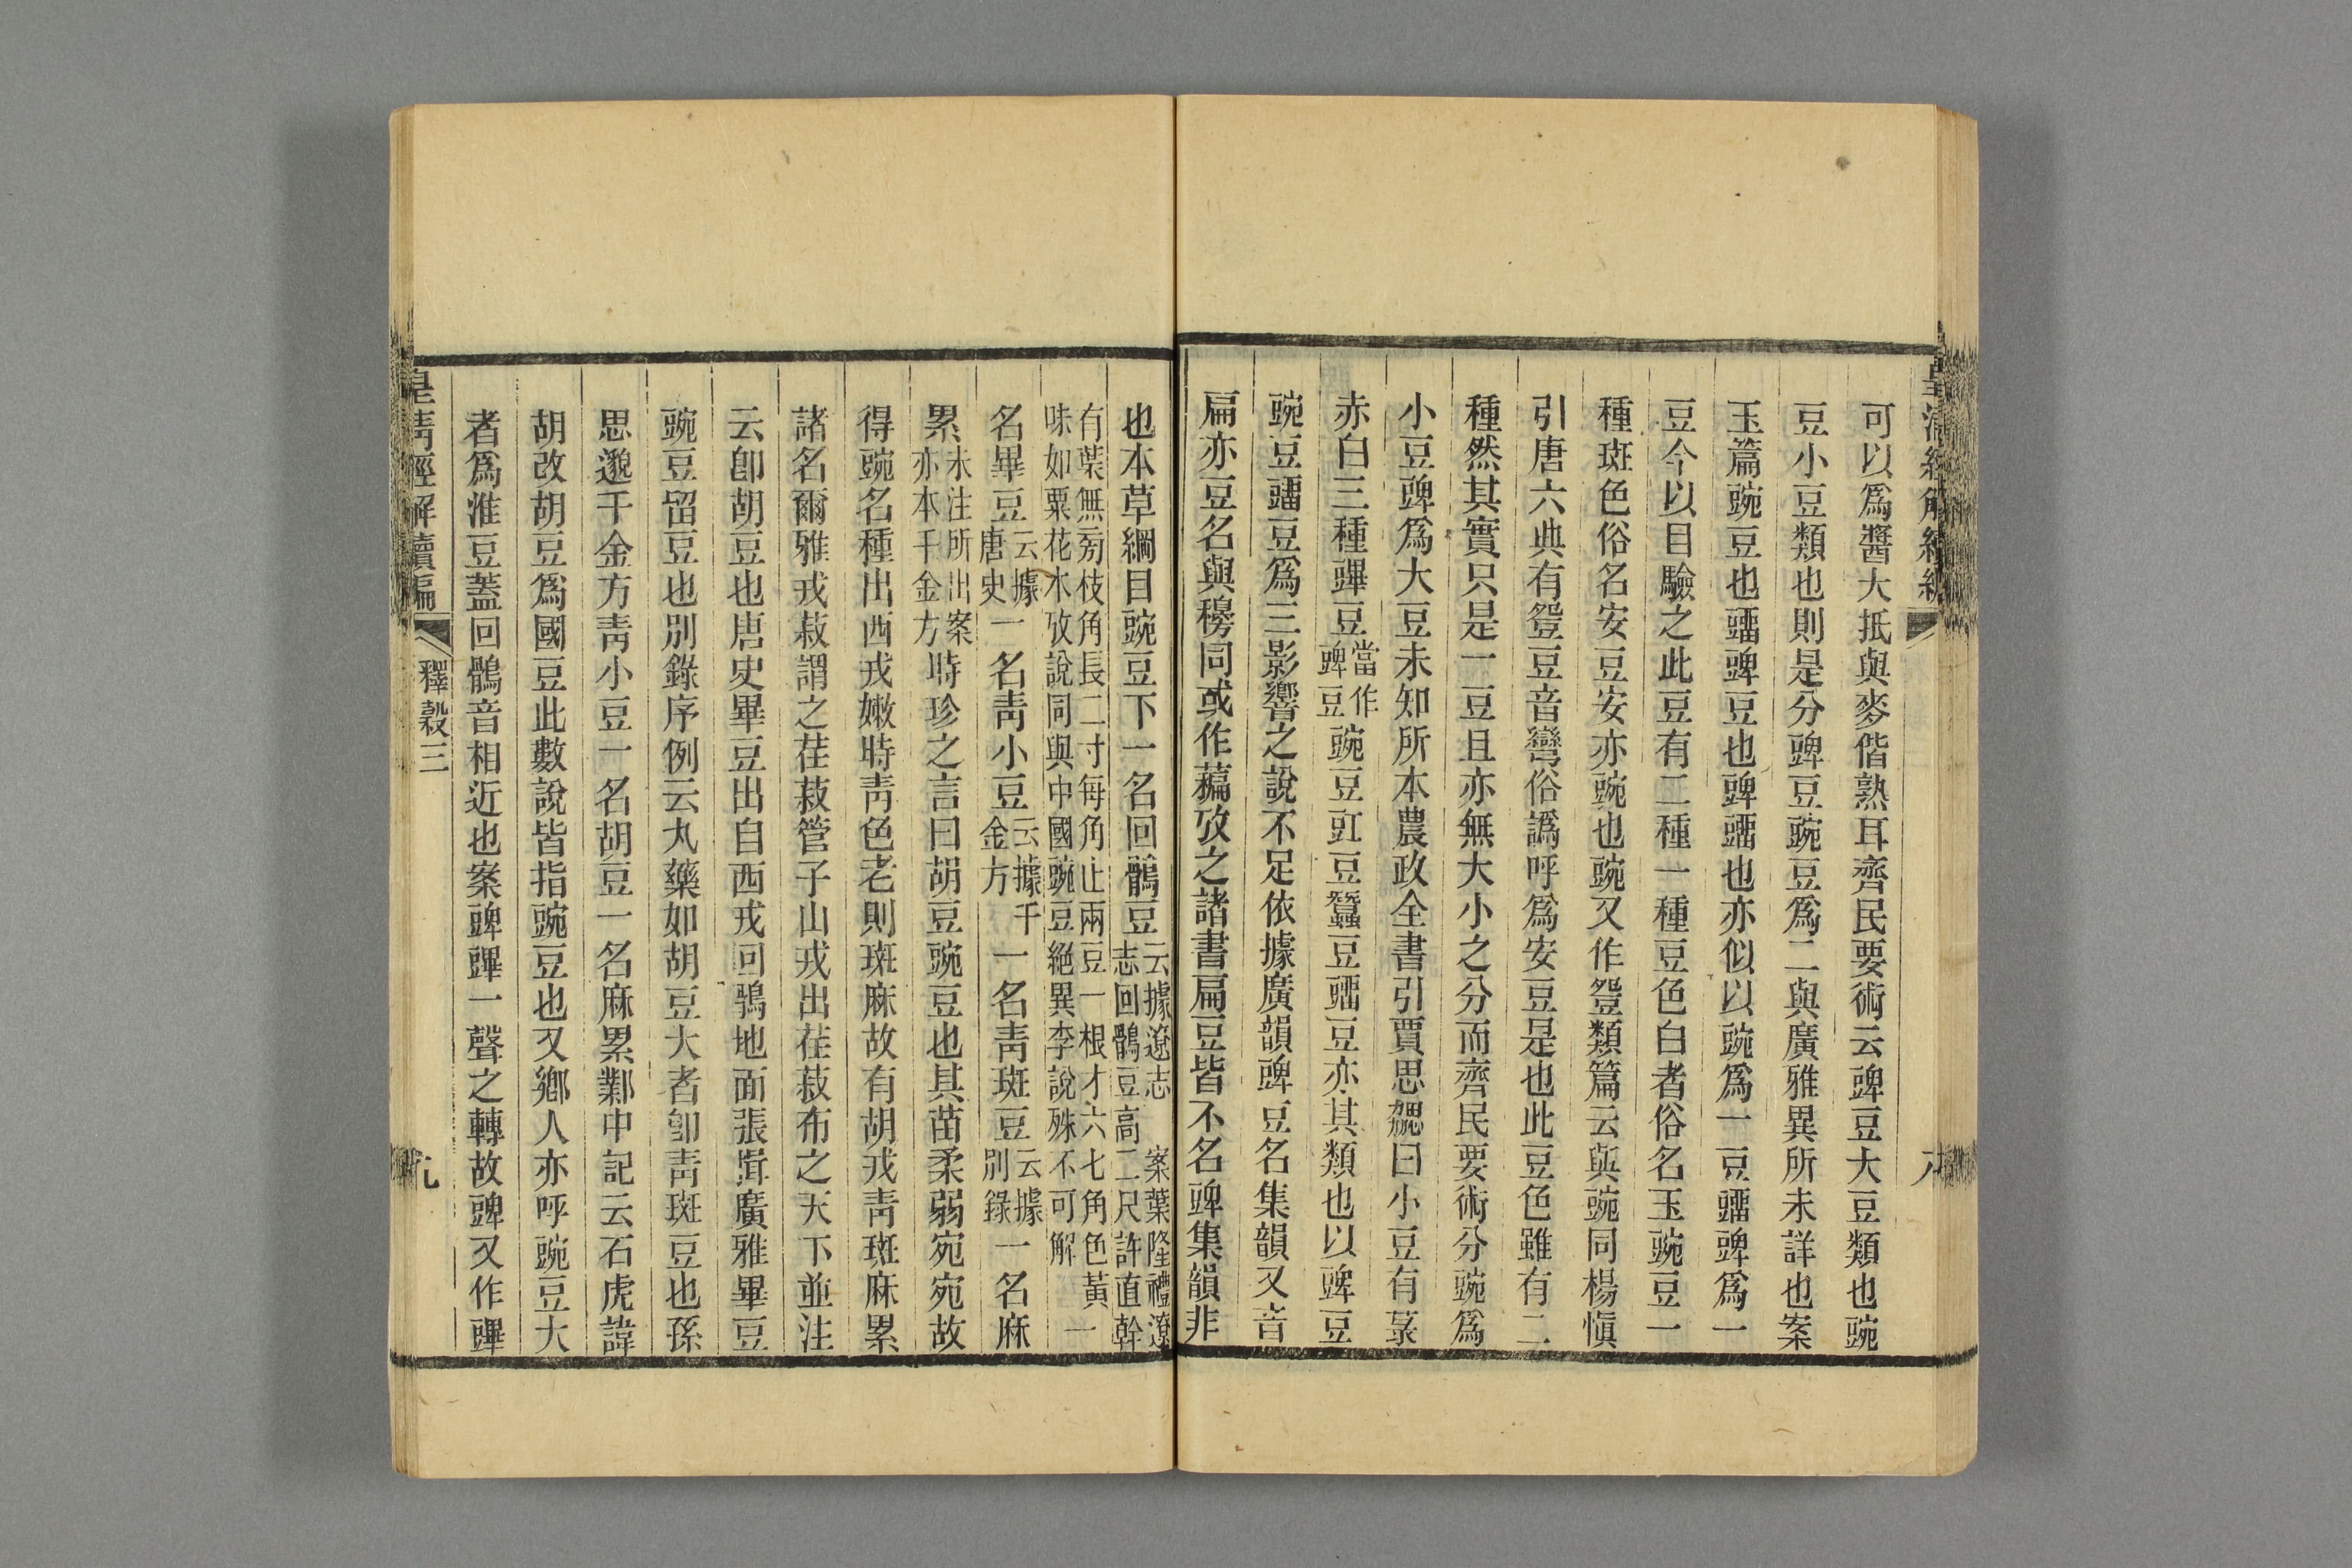 皇清經解續編
可以爲醬大抵與麥偕熟耳齊民要術云豍豆大豆類也豌
豆小豆類也則是分豍豆豌豆爲二與廣雅異所未詳也案
玉篇豌豆也䝁豍豆也豍䝁也亦似以豌爲一豆䝁豍爲一
豆今以目驗之此豆有二種一種豆色白者俗名玉豌豆一
種斑色俗名安豆安亦豌也豌又作䝀類篇云與豌同楊愼
引唐六典有䝀豆音彎俗譌呼爲安豆是也此豆色雖有二
種然其實只是一豆且亦無大小之分而齊民要術分豌爲
小豆豍爲大豆未知所本農政全書引賈思勰曰小豆有菉
赤白三種㻫豆當作豍豆豌豆豇豆蠶豆䝁豆亦其類也以豍豆
豌豆䝁豆爲三影響之說不足依據廣韻豍豆名集韻又音
扁亦豆名與穆同或作藊攷之諸書扁豆皆不名豍集韻非
八
也本草綱目豌豆下一名回鶻豆云據遼志 案葉隆禮遼
志回鶻豆高二尺許直幹
有葉無旁枝角長二寸每角止兩豆一根才六七角色黃一
味如粟花水攷說同與中國豌豆絕異李說殊不可解
名畢豆云據唐史一名靑小豆云據千金方一名靑斑豆云據別錄一名麻
累未注所出案亦本千金方時珍之言曰胡豆豌豆也其苗柔弱宛宛故
得豌名種出西戎嫩時靑色老則斑麻故有胡戎靑斑麻累
諸名爾雅戎菽謂之荏菽管子山戎出荏菽布之天下並注
云卽胡豆也唐史畢豆出自西戎回鶻地面張揖廣雅畢豆
豌豆留豆也別錄序例云丸藥如胡豆大者卽靑斑豆也孫
思邈千金方靑小豆一名胡豆一名麻累鄴中記云石虎諱
胡改胡豆爲國豆此數說皆指豌豆也又鄉人亦呼豌豆大
者爲淮豆蓋回鶻音相近也案豍㻫一聲之轉故豍又作㻫
皇淸經解續編
釋穀三
九